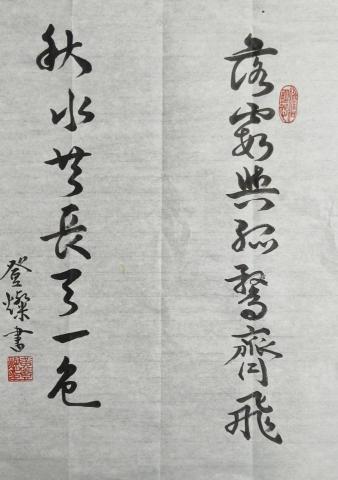 落霞與孤鶩齊飛
秋水共長天一色
登燦書